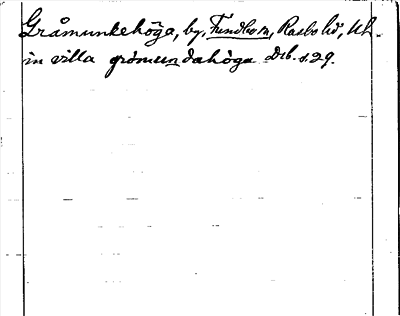 Gråmunkehöga, by, Funbo sn, Rasbo hd, Uh.
in villa gromundahöga Drb. s. 29.